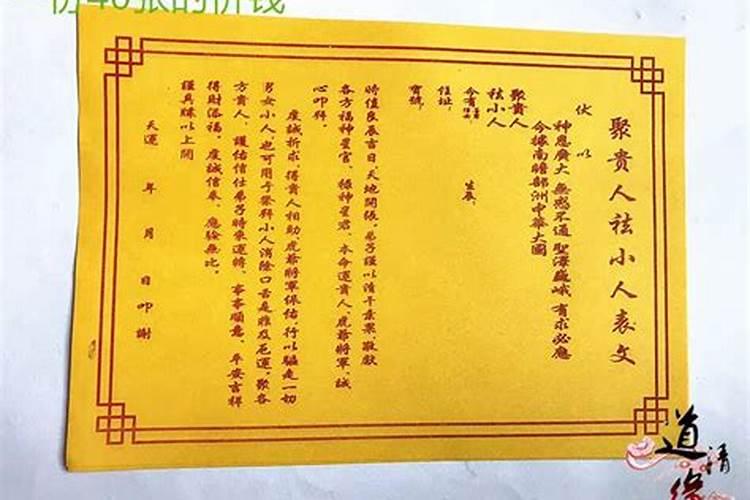 份40张的价钱
聚貴人祛小人表文
伏以
神恩廣大 無感不通 聖澤巍峨 有求必應
今據南瞻部洲中華大國
聚貴人
祛小人
今有
生辰
住址
寶號
時值良辰吉日，天地開張，弟子謹以清干素果 敬獻
各方福神星官，祿神星君，本命運貴人，虎爺將軍，誠
心叩拜。
虔誠祈求，得貴人相助虎爺將軍保佑 行以驅走一切
男女小人，也可用于祭拜小人消除口舌是非及厄運，聚各
方貴人，護佑信仕弟子時來運轉，事事順意，平安吉祥
得財添福。虔誠信奉，應驗無比。
謹具牒以上聞
天運 年 月 日叩謝
道清
缘